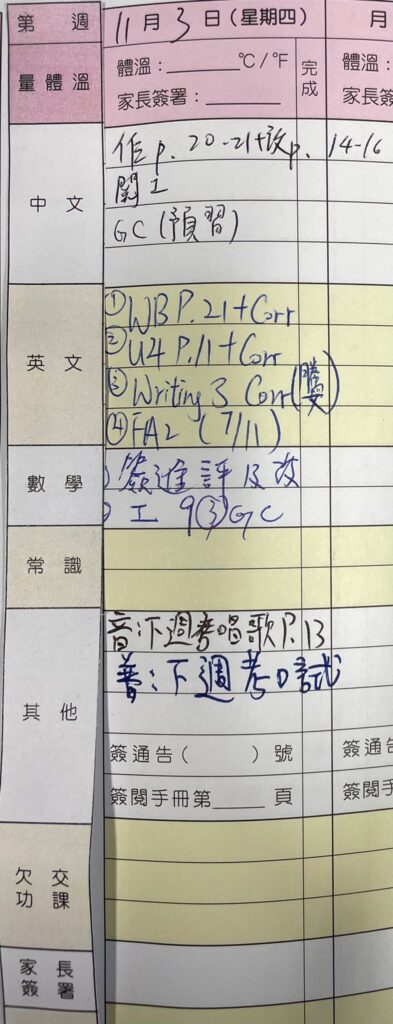 第 週 11月3日(星期四) 月
量體溫 體溫:______ °C/°F 完成 體溫:
家長簽署:______ 家長簽
中文 作p. 20-21+改p. 14-16
閱工
GC(預習)
英文 ①WB P.21+Corr
②U4 P.11+Corr
③Writing 3 Corr(騰文)
④FA2 (7/11)
數學 簽進評及改
工 9③GC
常識
其他 音:下週考唱歌P.13
普:下週考口試
簽通告( )號 簽通告
簽閱手冊第____頁 簽閱手
欠交功課
家長簽署